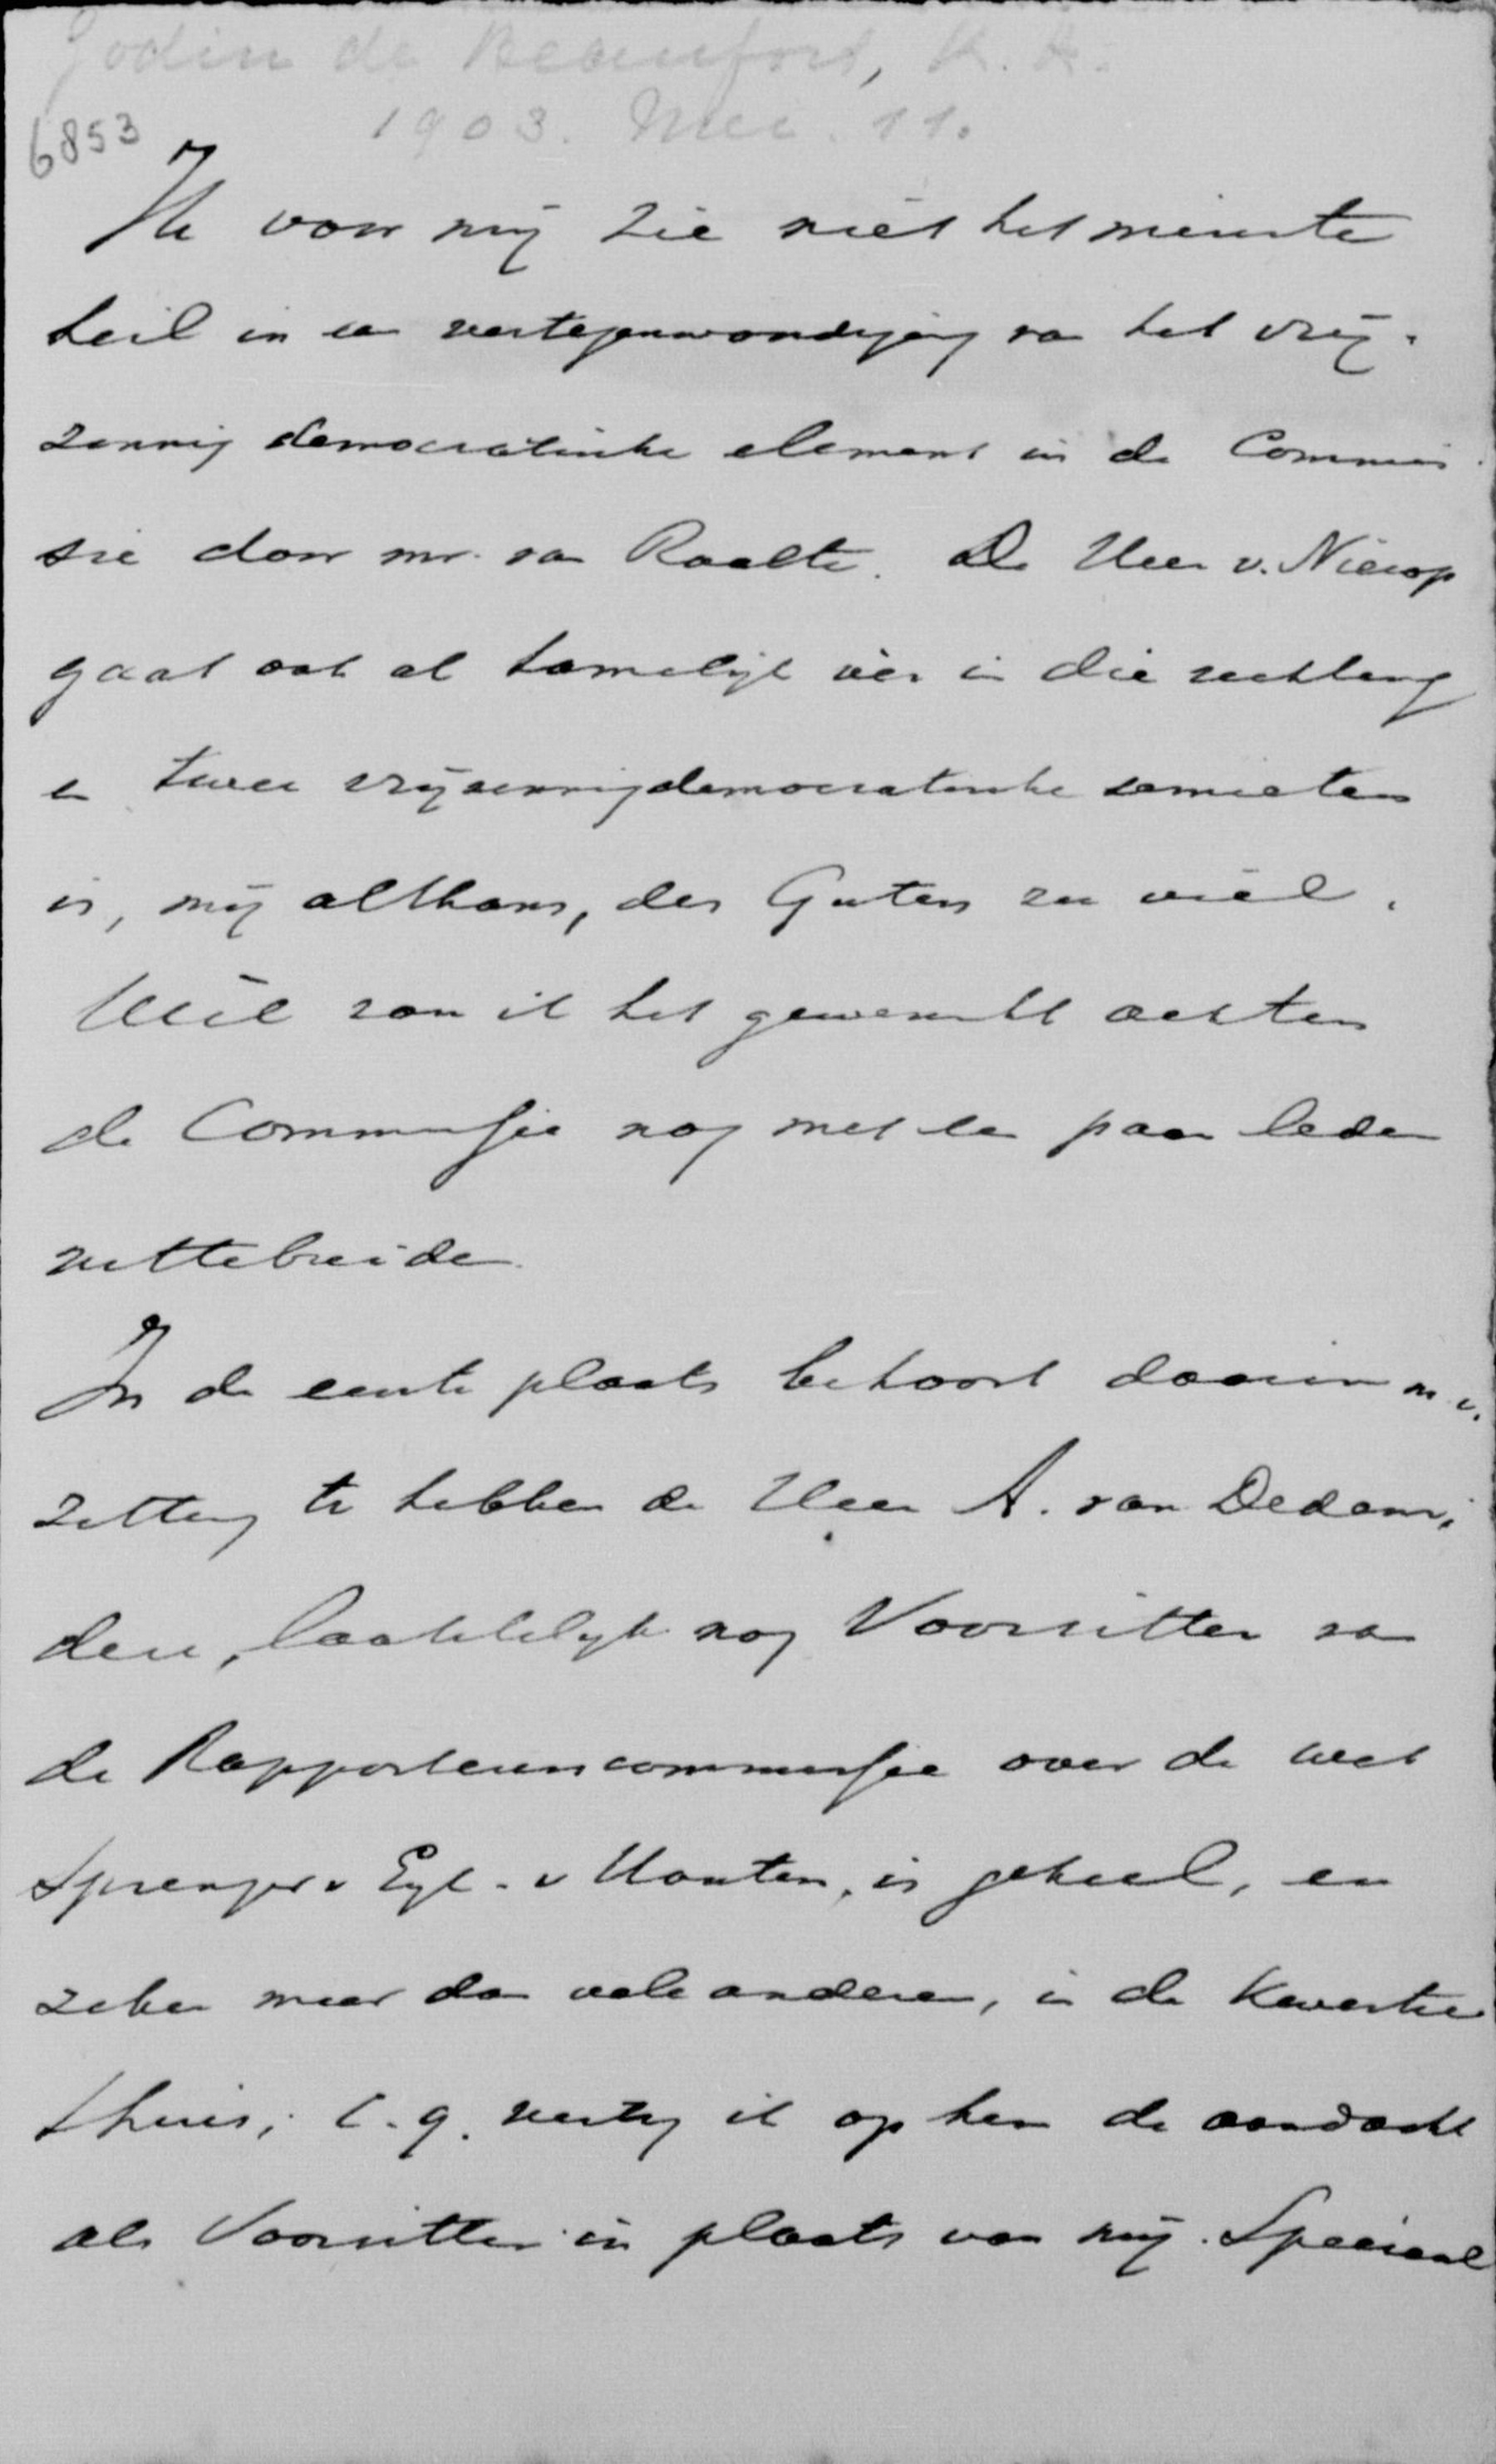 Godin de Beaufort, K. A.
1903. Mei. 11.
6853
Ik voor mij zie niet het minste
heil in een vertegenwoordiging van het vrij-
zinnig democratische element in de Commis
sie door mr. van Raalte. De Heer v. Nierop
gaat ook al tamelijk vèr in die richting
en twee vrijzinnigdemocratische semieten
is, mij althans, des Guten zu viel.
Wel zou ik het gewenscht achten
de Commissie nog met een paar leden
uittebreiden.
In de eerste plaats behoort daarin m.i.
zitting te hebben de Heer A. van Dedem;
deze, laatstelijk nog Voorzitter van
de Rapporteurscommissie over de wet
Sprenger v Eyk - v Houten, is geheel, en
zeker meer dan vele anderen, in de kwestie
thuis; c.q. vestig ik op hem de aandacht
als Voorzitter in plaats van mij. Speciaal